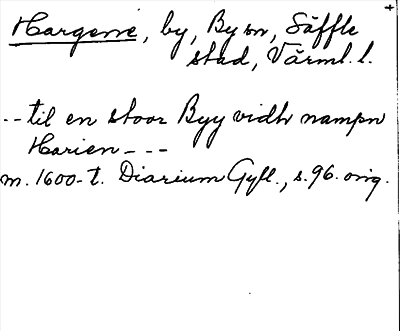 Hargene, by, By sn, Säffle
stad, Värml. l.
-- til en stoor Byy vidh nampn
Harien ---
m. 1600-t. Diarium Gyll., s. 96. orig.